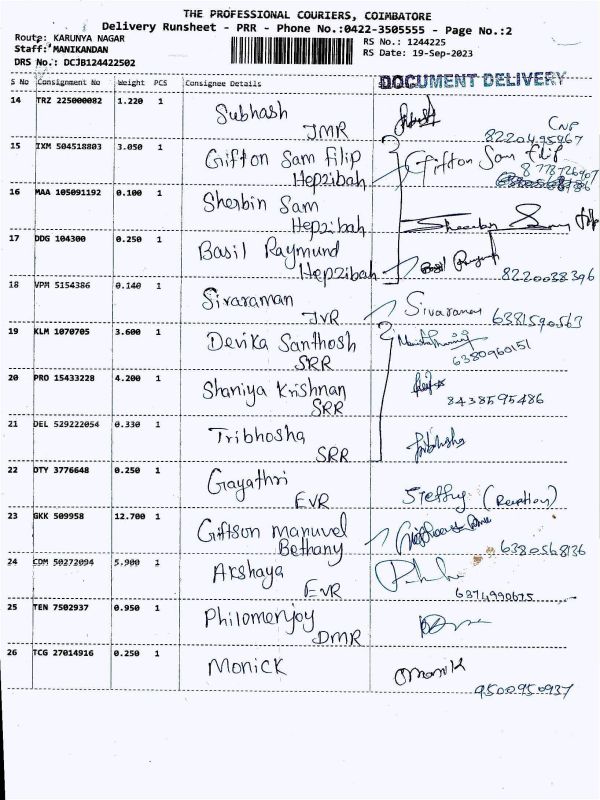 THE PROFESSIONAL COURIERS, COIMBATORE
Delivery Runsheet - PRR - Phone No.:0422-3505555 - Page No.:2
Route: KARUNYA NAGAR
Staff: MANIKANDAN
DRS No.: DCJB124422502
RS No.: 1244225
RS Date: 19-Sep-2023
S No Consignment No Weight PCS Consignee Details DOCUMENT DELIVERY
14 TRZ 225000082 1.220 1 Subhash
JMR CNP
8220495867
15 IXM 504518803 3.050 1 Gifton Sam Filip Gifton Sam Filip
Hepzibah
16 MAA 105091192 0.100 1 Sherbin Sam
Hepzibah
17 DDG 104300 0.250 1 Basil Raymund
Hepzibah 8220038396
18 VPM 5154386 0.140 1 Sivaraman Sivaraman
JVR 6381590563
19 KLM 1070705 3.600 1 Devika Santhosh
SRR 6380960151
20 PRO 15433228 4.200 1 Shaniya Krishnan
SRR 8438595486
21 DEL 529222054 0.330 1 Tribhosha
SRR
22 DTY 3776648 0.250 1 Gayathri
EVR Steffy (Reception)
23 GKK 509958 12.700 1 Giftson Manuvel
Bethany 6380568136
24 CDM 50272094 5.900 1 Akshaya
EVR 6374990675
25 TEN 7502937 0.950 1 Philomenjoy
DMR
26 TCG 27014916 0.250 1 Monick Monik
9500950937